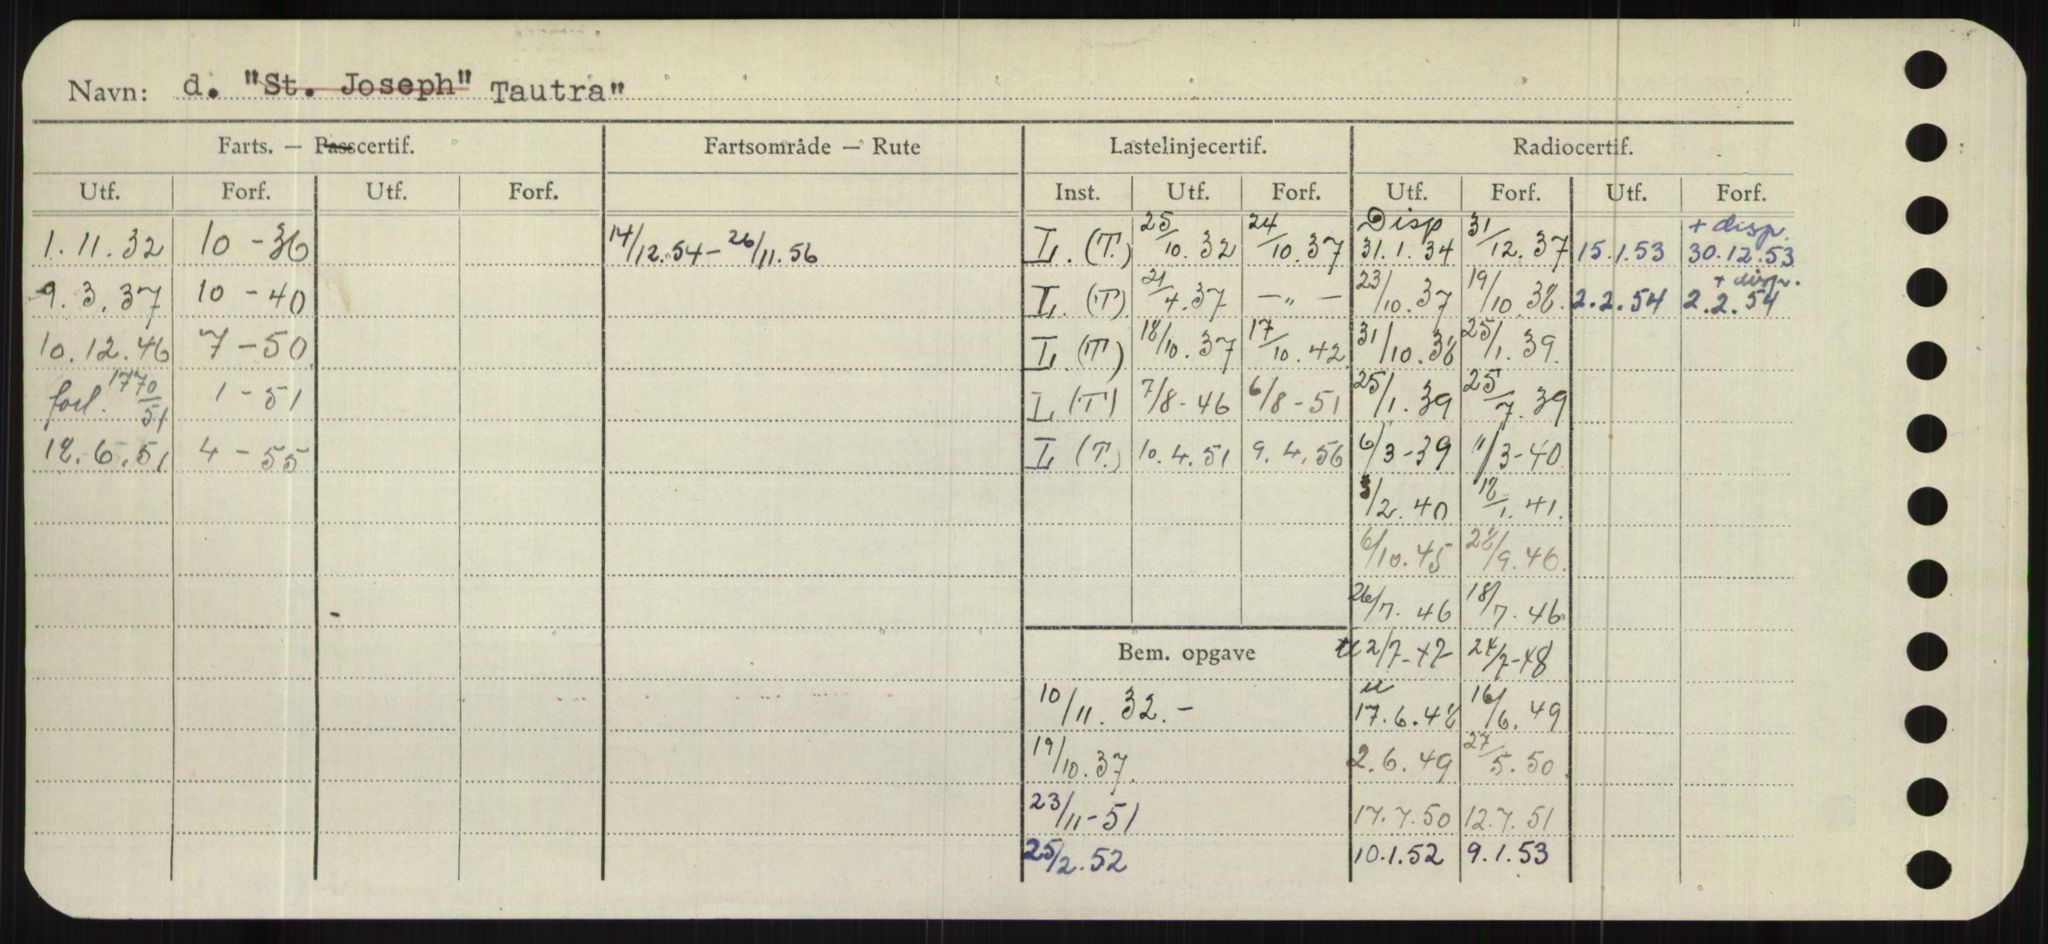 Navn: d. "St. Joseph" Tautra"
Farts. — Passcertif. Fartsområde — Rute Lastelinjecertif. Radiocertif.
Utf. Forf. Utf. Forf. Inst. Utf. Forf. Utf. Forf. Utf. Forf.
Disp + disp.
1.11.32 10 - 36 14/12.54 - 26/11.56 L. (T.) 25/10.32 24/10.37 31.1.34 31/12.37 15.1.53 30.12.53
+ disp.
9.3.37 10 - 40 L. (T) 21/4.37 — „ — 23/10.37 19/10.38. 2.2.54 2.2.54
10.12.46 7 - 50 L. (T) 18/10.37 17/10.42 31/10.38 25/1.39.
forl. 1770/51 1 - 51 L (T) 7/8-46 6/8-51 25/1.39 25/7.39
18.6.51 4 - 55 L (T.) 10.4.51 9.4.56 6/3-39 "/3-40
/2.40 18/1.41.
6/10.45 28/9.46.
26/7.46 18/7.46
Bem. opgave 2/7-47 24/7-48
u
10/11.32.- 17.6.48 16/6.49
19/10.37. 2.6.49 27/5.50.
23/11-51 17.7.50 12.7.51
25/2.52 10.1.52 9.1.53